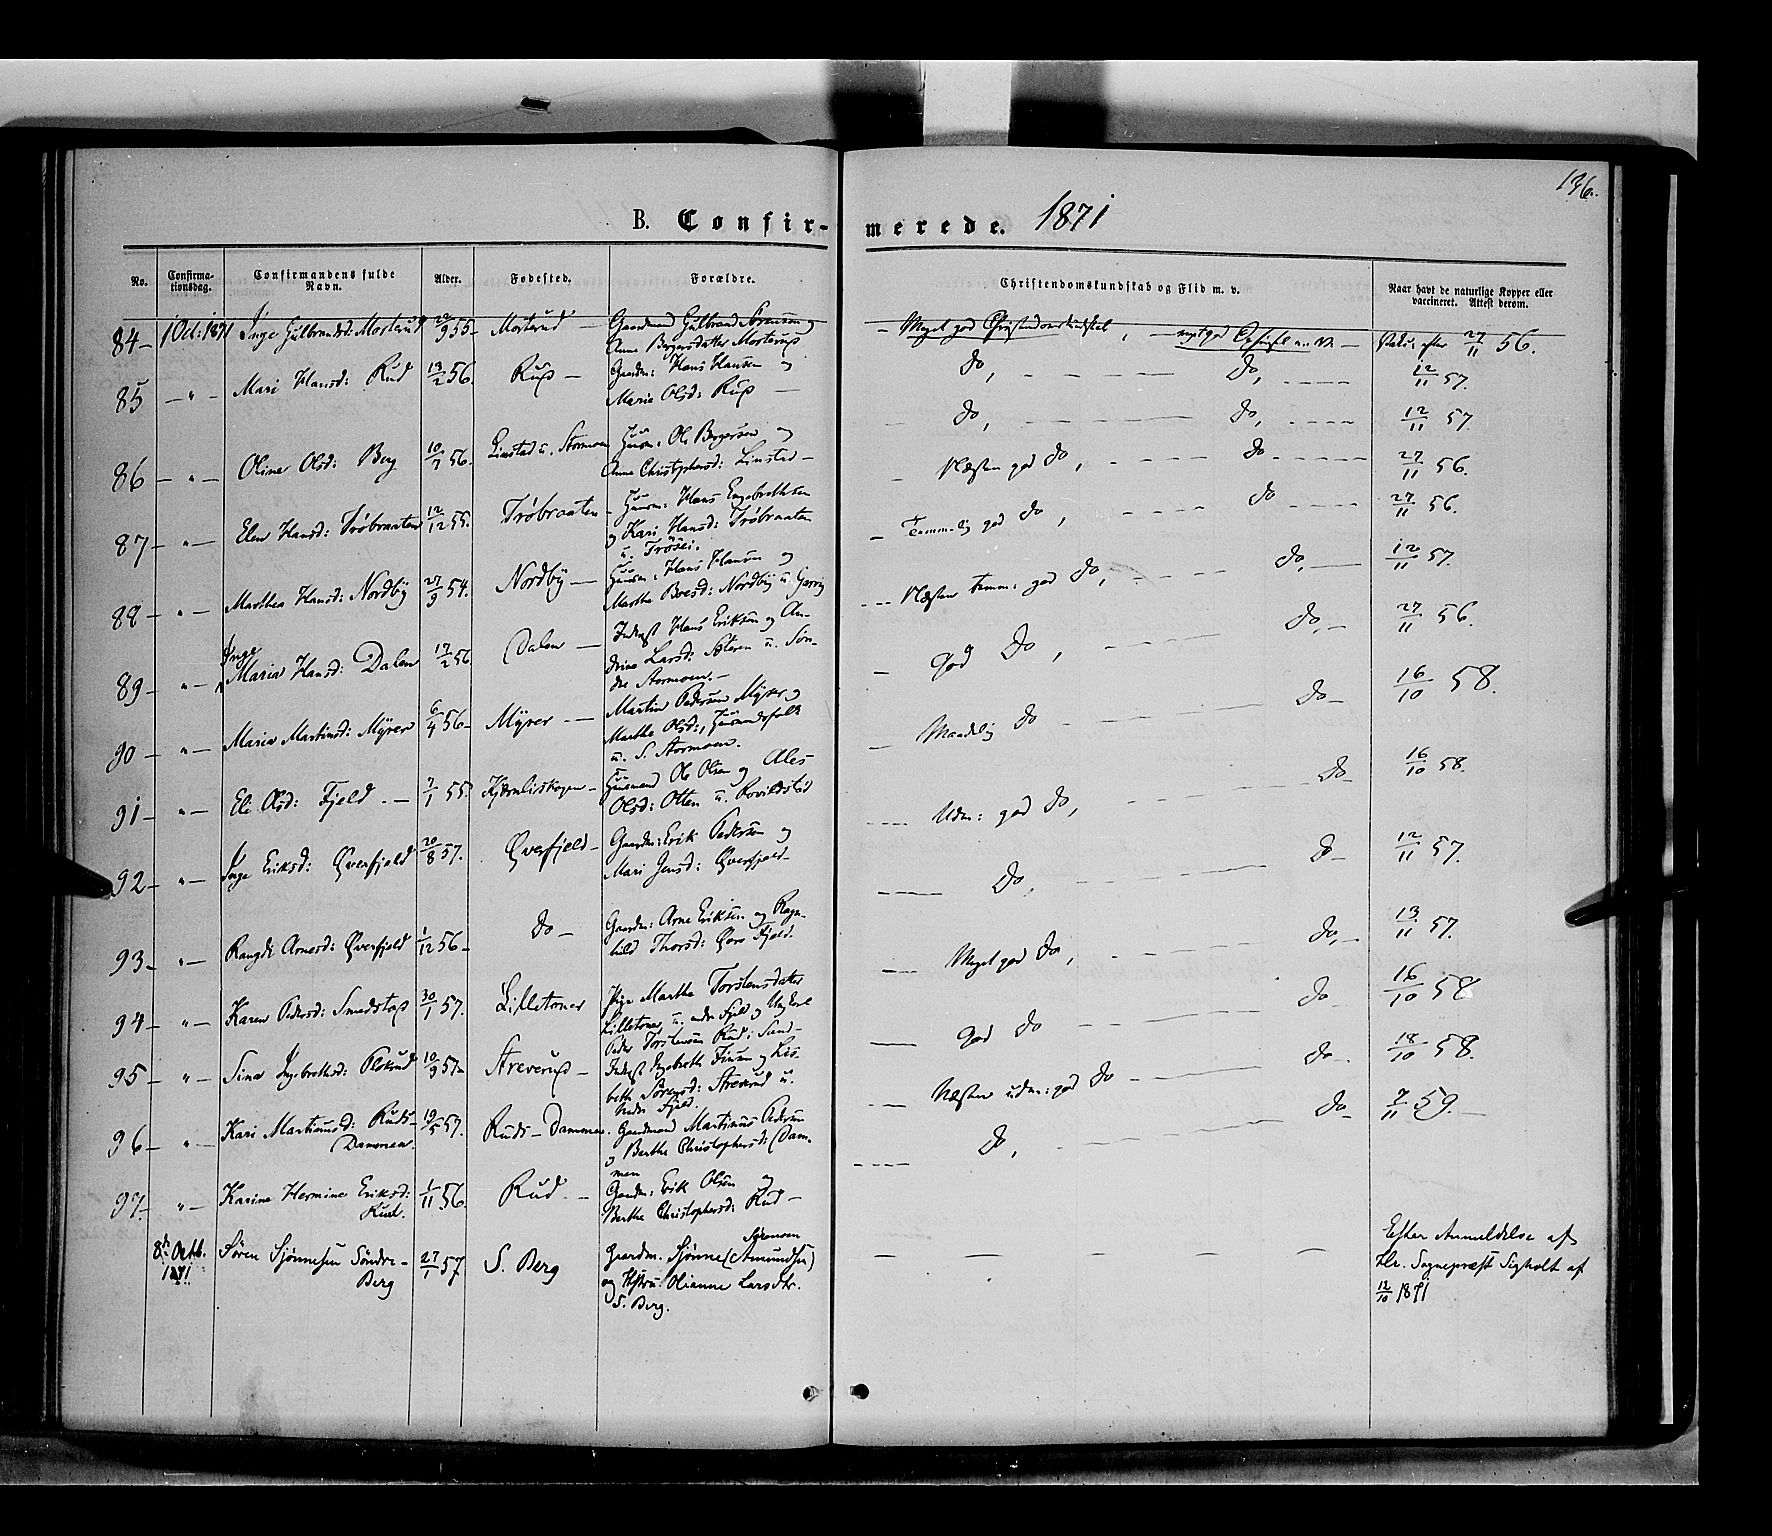 136.
B. Confirmerede. 1871
No.
Confirmationsdag.
Confirmandens fulde Navn.
Alder.
Fødested.
Forældre.
Christendomskundskab og Flid m. v.
Naar havt de naturlige Kopper eller vaccineret. Attest derom.
84 – 1 Oct: 1871 Inge Gulbrandsd: Mosterud 9 55 – Mosterud – Gaardmand Gulbrand Sørensen og
Anne Bergersdatter Mosterud
– Meget god Christendomskundskab, – meget god – efter 27/11 56.
85 – " – Mari Hansd: Rud 13/2 56. Rud – Gaardm: Hans Hansen og
Marie Olsd: Rud –
do, – do, – 12/11 57.
86 – " – Oline Olsd: Berg 10/7 56. Linstad u. Stormoen Husm: Ole Bergersen og
Anne Christophersd: Linstad –
do, – do, – 12/11 57.
87 – " – Elen Hansd: Trøbraaten 12/12 55. Trøbraaten – Husm: Hans Engebrethsen
og Kari Hansd: Trøbraaten
u.
– Næsten god do, – do – 27/11 56.
88 – " – Marthea Hansd: Nordby 27/9 54. Nordby – Husm: Hans Hansen og
Marthe Boesd: Nordby u.
– Temmelig god do, – do – 27/11 56.
89 – " – Inge Maria Hansd: Dalen 17/2 56 Dalen – Inderst Hans Eriksen og An-
drine Larsd: u. Søn-
dre Stormoen. –
– Næsten temm: god do, – do, – 12/11 57.
90 – " – Maria Martinsd: Myrer 6/4 56 – Myrer – Martin Pedersen Myrer og
Marthe Olsd:, Husmandsfolk
u. S. Stormoen.
– god do, – do, – 27/11 56.
91 – " – Eli Olsd: Fjeld – 7/1 55. Husmand Ole Olsen og Ales
Olsd: Otten u.
– Maadelig do – do – 16/10 58.
92 – " – Inge Eriksd: Øverfjeld 20/8 57. Øverfjeld – Gaardm: Erik Pedersen og
Mari Jensd: Øverfjeld –
– Udm: god do, – do – 16/10 58.
93 – " – Rangdi Arnesd: Øverfjeld 1/12 56 – do – Gaardm: Arne Eriksen og Ragn-
hild Thorsd: Øvre Fjeld.
– do, – do – 12/11 57.
94 – " – Karen Pedersd: Smedstad 30/1 57. Lilletoner Pige Marthe Torstensdatter
Lilletoner, u. nedre Fjeld og Ungkarl
Peder Torstensen Rud i Sand –
– Meget god do, – do, – 13/11 57.
95 – " – Sina Ingebrethsd: 10/9 57 – Streverud – Inderst Ingebreth Finsen og Lis-
beth Sørensd: Streverud u.
Nedre Fjeld.
– god do – do – 16/10 58
96 – " – Kari Martinusd: Ruds-
Dammen. 19/5 57. Ruds-Dammen. Gaardmand Martinus Pedersen
og Berthe Christophersd: Dam-
men
– Næsten udm: god do – do – 18/10 58.
97. " – Karine Hermine Eriksd:
Rud. 1/11 56. Rud. – Gaardm: Erik Olsen og
Berthe Christophersd: Rud –
– do, – do – 7/11 59. –
8de Octb.
1871. Søren Sjønnesen Søndre-
Berg 27/1 57 S. Berg Gaardm. Sjønne Sørensen (Amundsen)
og Hustru Olianne Larsdtr.
S. Berg.
– – – – –
Efter Anmeldelse af
Hr. Sognepræst Sigholt af
12/10 1871